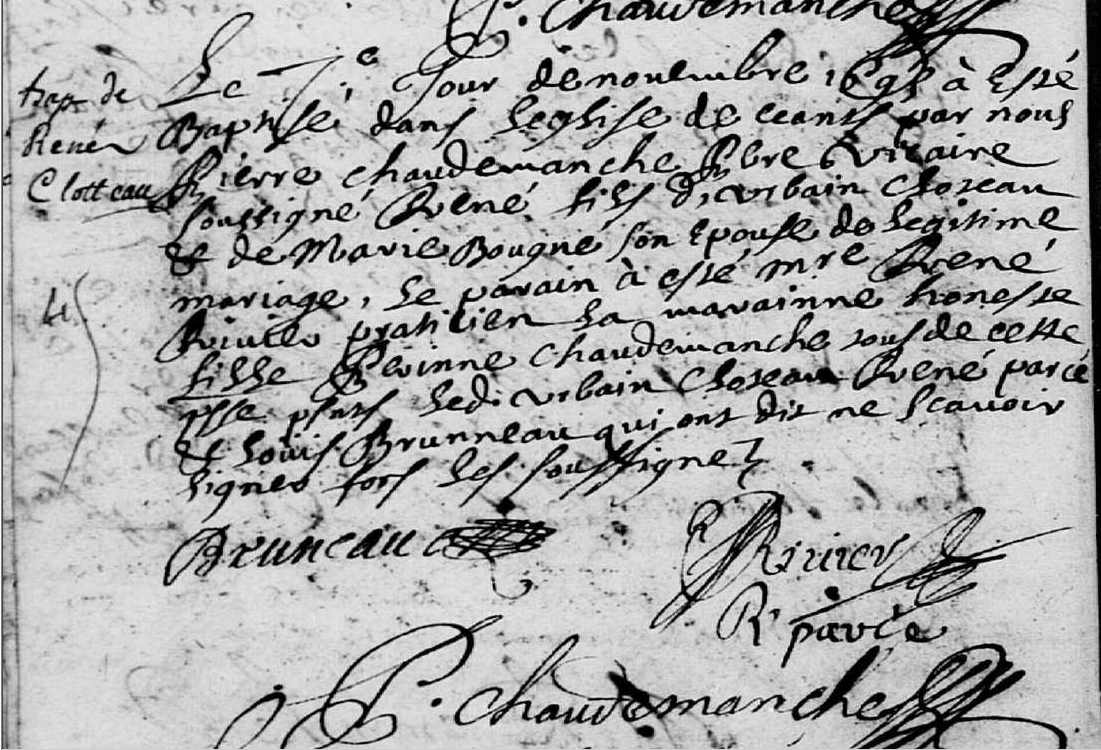 P. Chaudemanche
bap de
René
Clotteau
Le 7e Jour de nouembre 1695 à Esté
Baptisé dans leglise de ceans par nous
Pierre chaudemanche Pbre viccaire
soussigné René fils d'urbain Cloteau
& de Marie Bougné son Epouse de legitime
mariage, le parain à esté mre René
Riuier pratitien La marainne honeste
fille Perinne chaudemanche tous de cette
psse pnts ledt urbain Cloteau René parcé
& Louis Brunneau qui ont dit ne scauoir
signer fors les soussignez
4
Bruneau
R Riuier
R parcé
P. chaudemanche